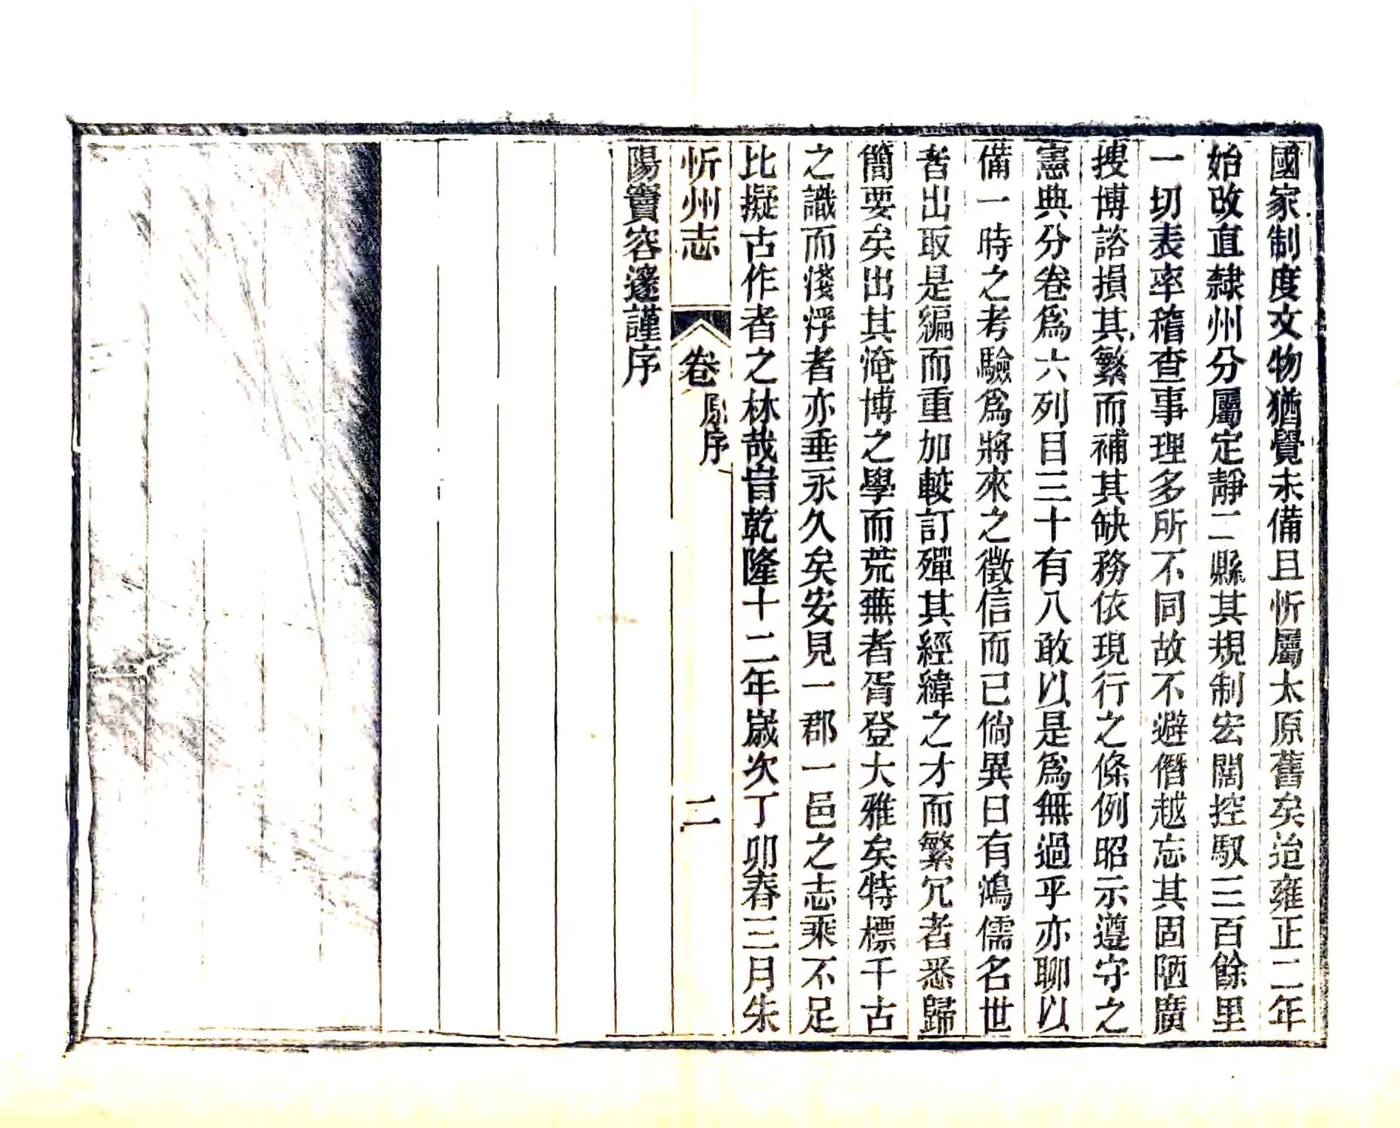 國家制度文物猶覺未備且忻屬太原舊矣迨雍正二年
始改直隸州分屬定靜二縣其規制宏闊控馭三百餘里
一切表率稽查事理多所不同故不避僭越忘其固陋廣
搜博諮損其繁而補其缺務依現行之條例昭示遵守之
憲典分卷爲六列目三十有八敢以是爲無過乎亦聊以
備一時之考驗爲將來之徵信而已倘異日有鴻儒名世
者出取是編而重加較訂殫其經緯之才而繁冗者悉歸
簡要矣出其淹博之學而荒蕪者胥登大雅矣特標千古
之識而淺浮者亦垂永久矣安見一郡一邑之志乘不足
比擬古作者之林哉旹乾隆十二年歲次丁卯春三月朱
忻州志 卷 原序 二
陽竇容邃謹序